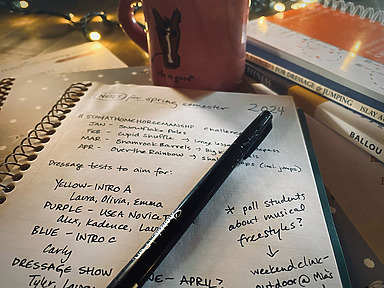 it's a good
FOR DRESSAGE & JUMPING ISLAY A
BALLOU
NOTES for Spring semester
2024
#STAYATHOMEHORSEMANSHIP challenge
JAN - Snowflake Poles
FEB - Cupid Shuffle → long
MAR - Shamrock Barrels →
APR - Over the Rainbow →
(incl. jumps)
Dressage tests to aim for:
YELLOW - INTRO A
Laura, Olivia, Emma
PURPLE - USEA NOVICE
Alex, Kadence,
BLUE - INTRO C
Carly
DRESSAGE SHOW
APRIL?
Tyler,
* poll students
about musical
freestyles?
↓
weekend clinic -
outdoor @ Mia's